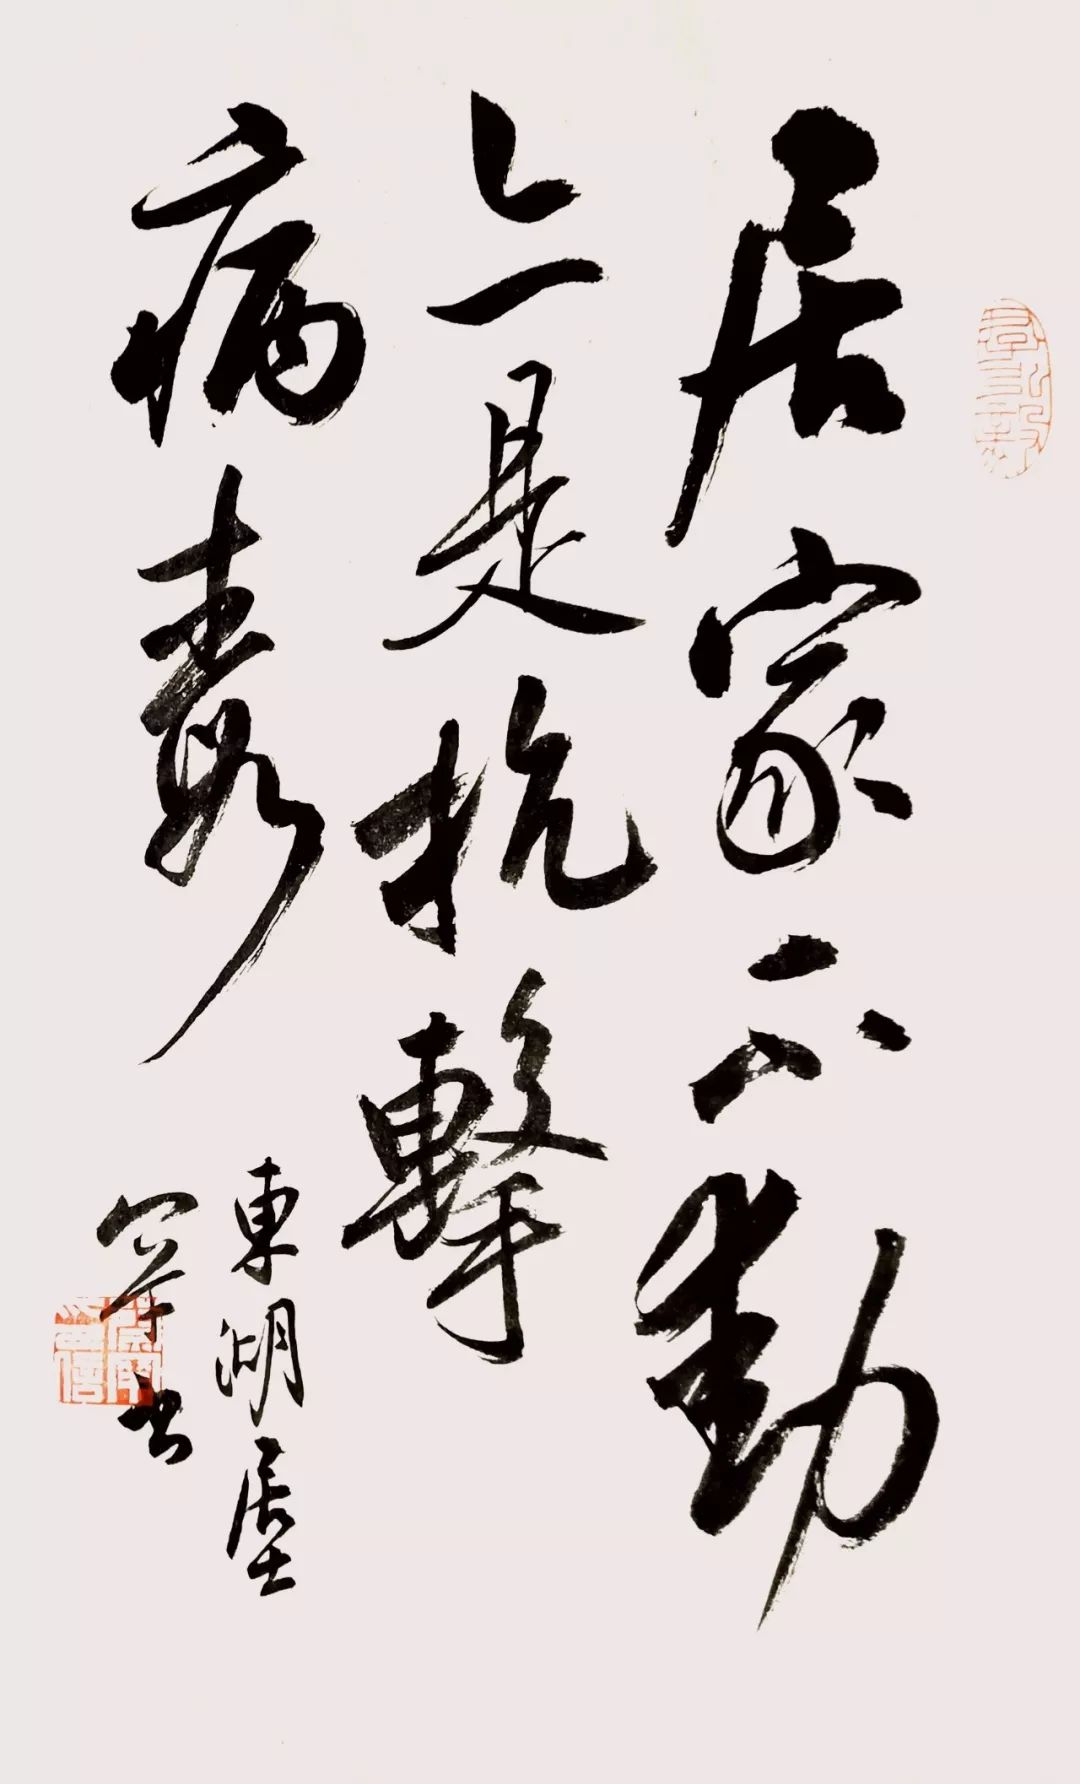 居家不動
亦是抗擊
病毒
東湖居士
書